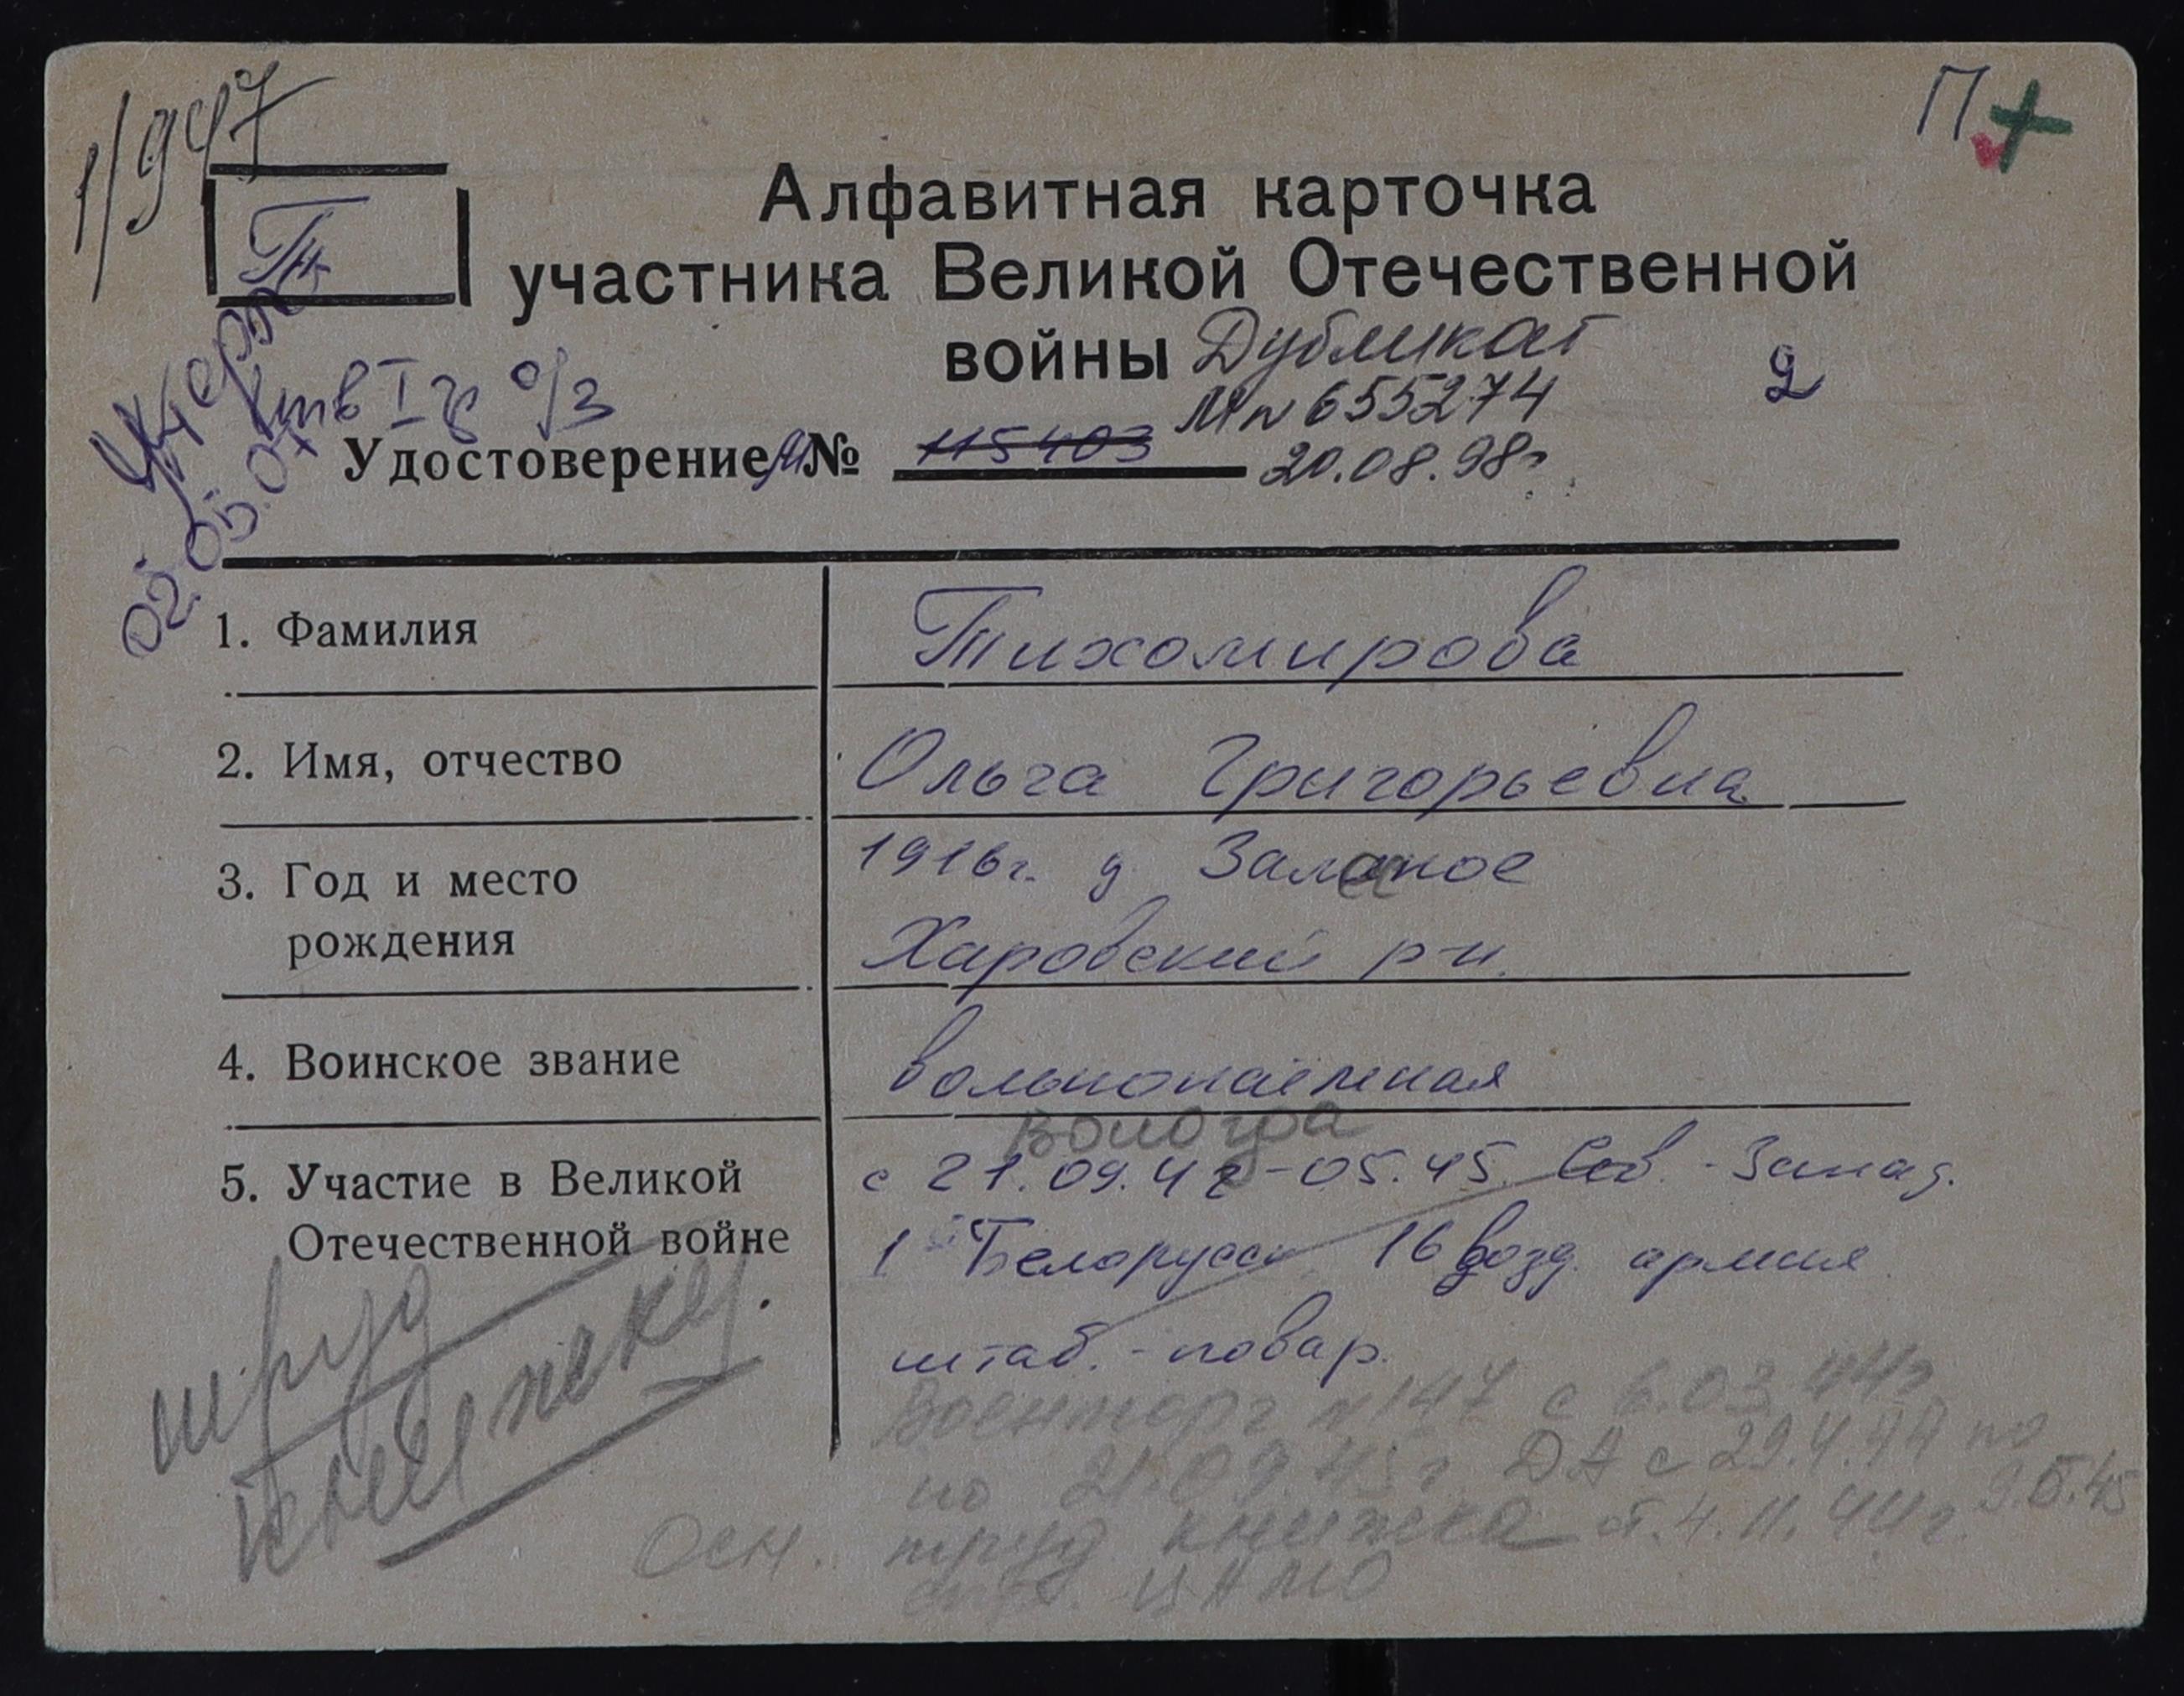 1/947
П
Тк
Алфавитная карточка
участника Великой Отечественной
войны Дубликат
2
М№ 655274
Удостоверение № 115403
20.08.98г.
02.05.07
1. Фамилия Тихомирова
2. Имя, отчество Ольга Григорьевна
3. Год и место рождения 1916г. д.
Харовский р-н.
4. Воинское звание вольнонаемная
Вологда
5. Участие в Великой Отечественной войне с 21.09.42-05.45. Сев.-Запад.
1 Белорусск 16 возд. армия
штаб.-повар.
труд
книжка
Военторг №147 с 6.03.44г
по 21.09.45г. ДА с 29.4.44 по
9.5.45
Осн. труд книжка от 4.11.44г.
спр. ЦАМО